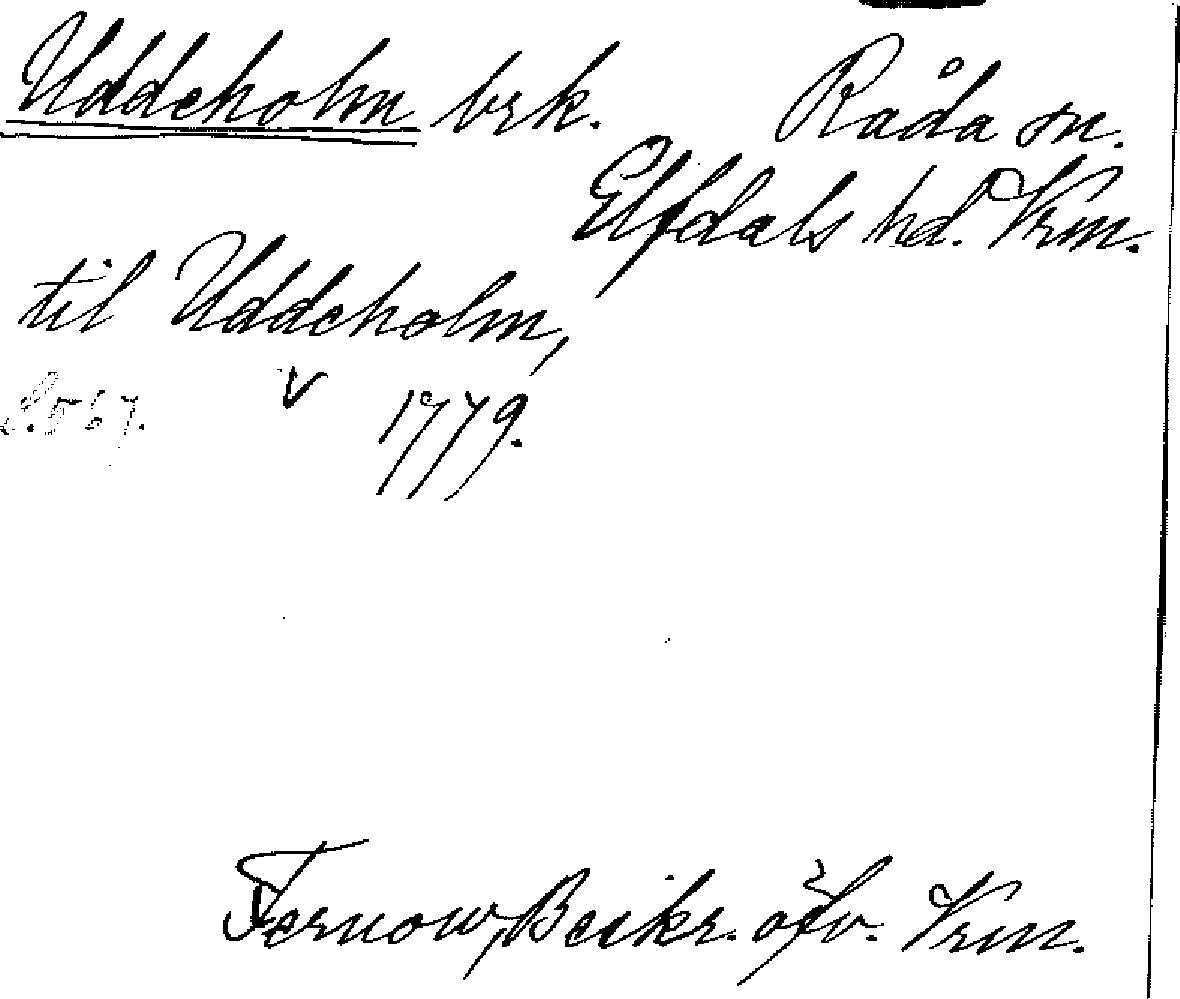 Uddeholm brk. Råda sn.
Elfdals hd. Vrm.
til Uddeholm,
S. 567. v 1779.
Fernow, Beskr. öfv. Vrm.